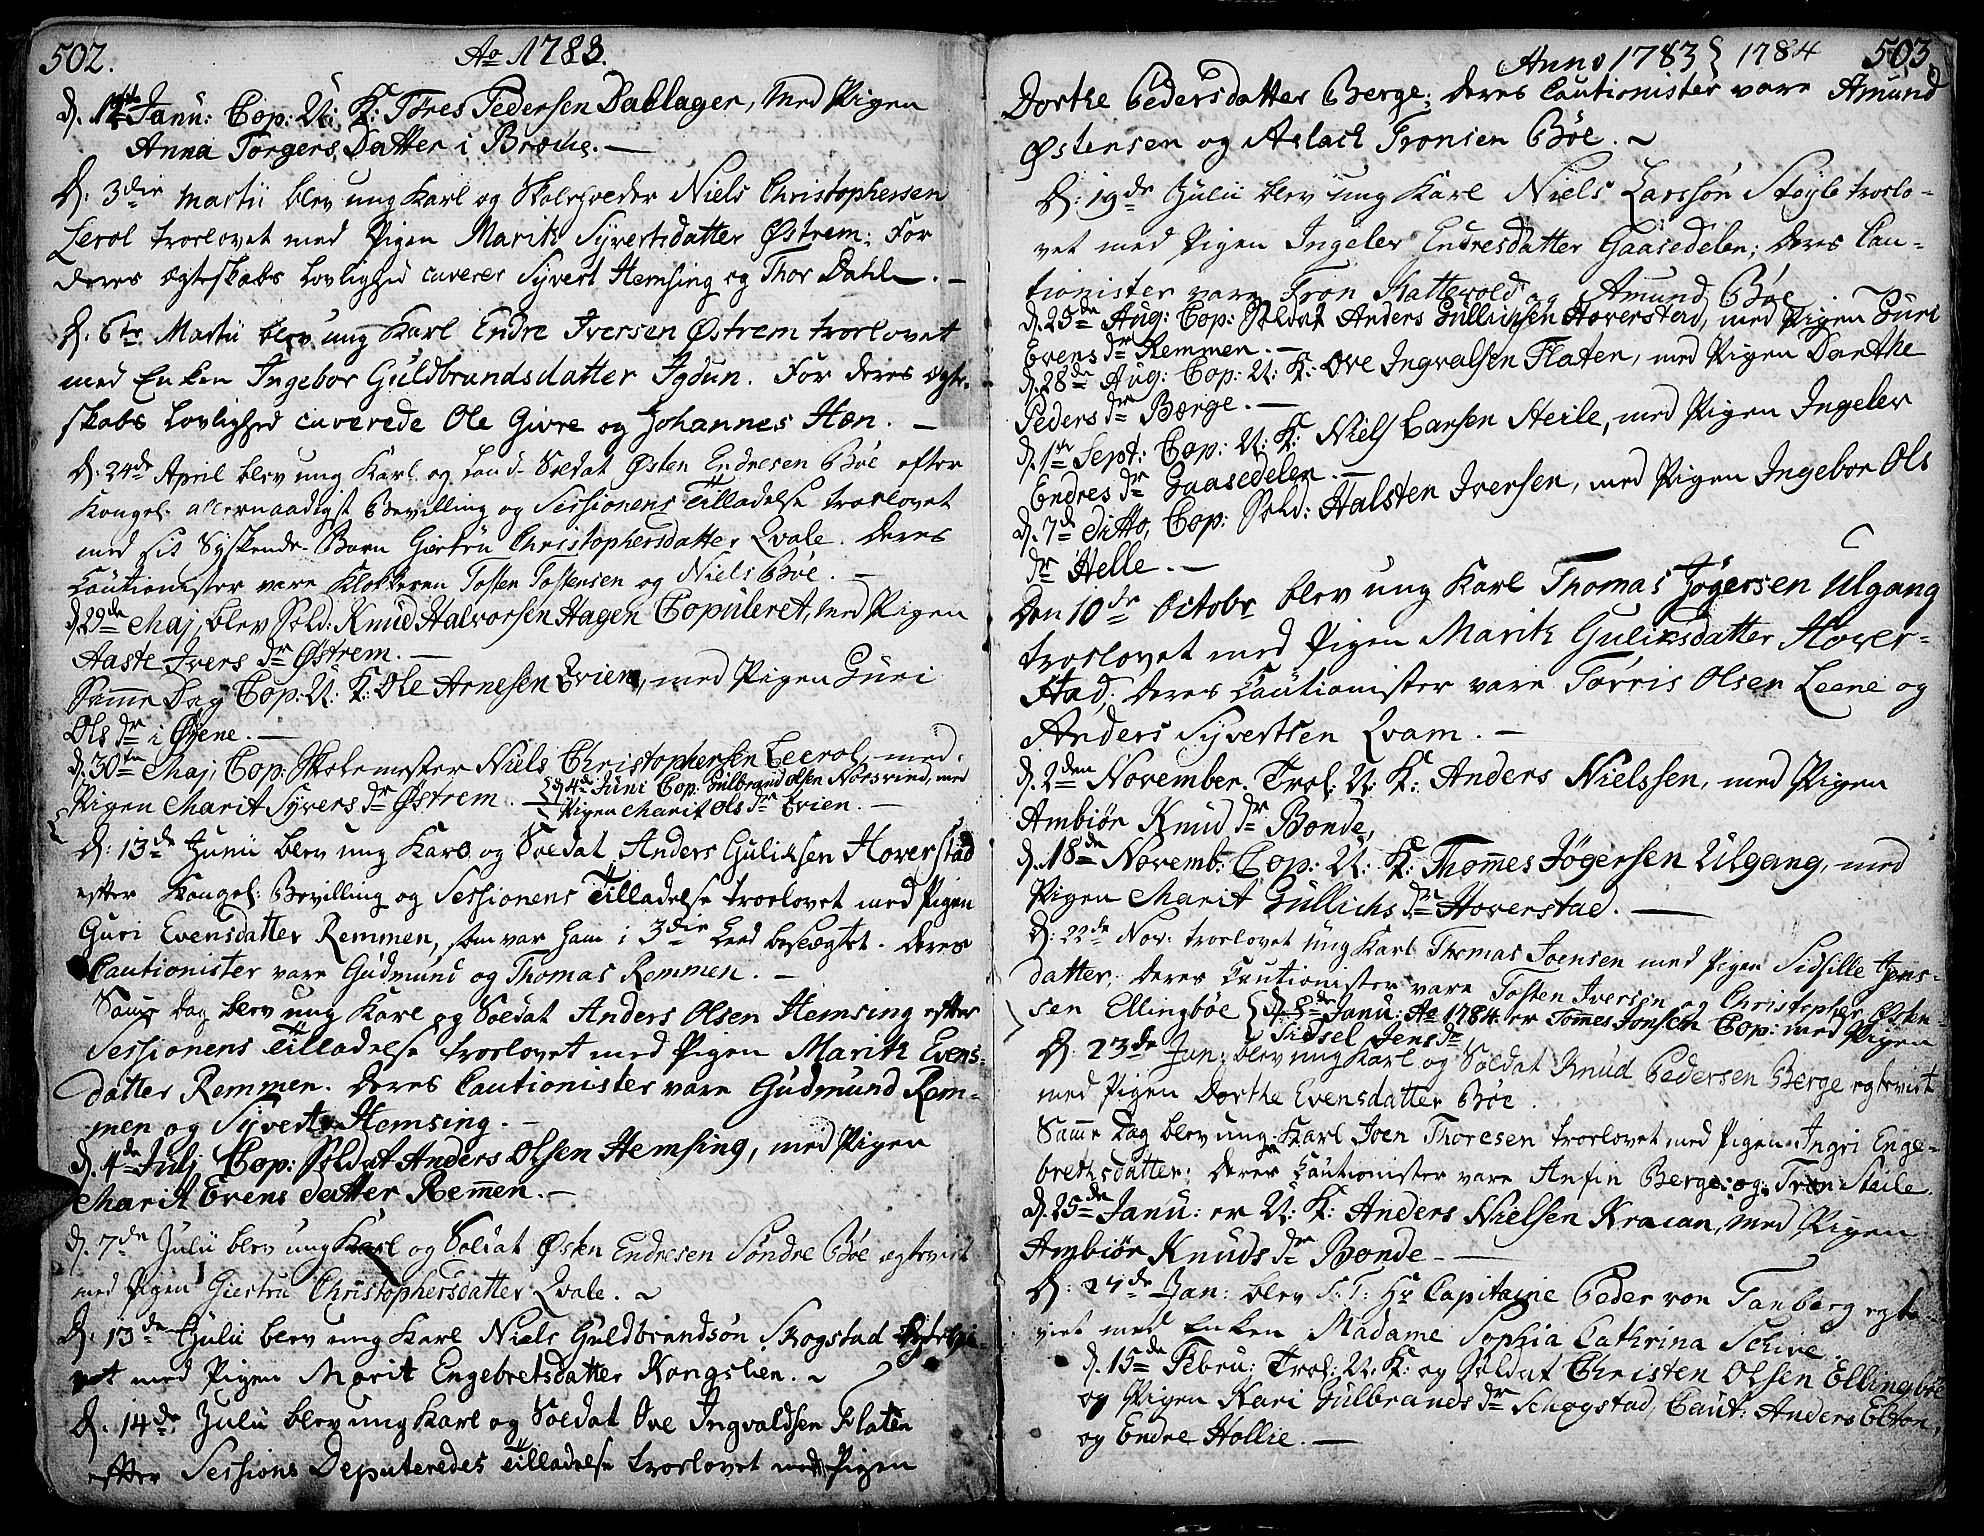 502.
Ao 1783.
d. 1te Janu: Cop: U: K: Tores Pedersen Dahlagen, med Pigen
Anna Torgers Datter i Bræche. —
D: 3die Martii blev ung Karl og Skoleholder Niels Christophersen
Lerol trorlovet med Pigen Marith Syvertsdatter Østrem; For
deres ægteskabs lovlighed caverer Syvert Hemsing og Thor Dahle. —
D. 6te Martii blev ung Karl Endre Iversen Østrem trorlovet
med Enken Ingebor Guldbrandsdatter Igdun. For deres ægte-
skabs lovlighed caverede Ole Givre og Johannes Hæn. —
D: 24de April blev ung Karl og Land-Soldat Østen Endresen Bøe efter
Kongel: allernaadigst Bevilling og Sessionens Tilladelse trorlovet
med sit Syskende-Barn Giertru Christophersdatter Qvale. Deres
Cautionister vare Klokkeren Tosten Tostensen og Niels Bøe. —
d. 29de Maj, blev Sold: Knud Halvorsen Hagen Copuleret, med Pigen
Aaste Ivers dr Østrem. —
Samme Dag Cop: U: K: Ole Arnesen Qvien, med Pigen Guri
Ols dr i Øyene. —
d. 30te Maj, Cop: Skolemester Niels Christophersen Leerol, med
Pigen Marit Syvers dr Østrem. —
d. 4de Juni Cop: Gulbrand Olsen Norsvind, med
Pigen Marit Ols dr Qvien. —
D: 13de Junii blev ung Karl og Soldat Anders Guliksen Hoverstad
efter Kongel: Bevilling og Sessionens Tilladelse trorlovet med Pigen
Guri Evensdatter Remmen, som var ham i 3die Leed beslægtet. Deres
Cautionister vare Gudmund og Thomas Remmen. —
Samme Dag blev ung Karl og Soldat Anders Olsen Hemsing efter
Sessionens Tilladelse trorlovet med Pigen Marith Evens-
datter Remmen. Deres Cautionister vare Gudmund Rem-
men og Syvert Hemsing. —
d. 4de Julj Cop: Soldat Anders Olsen Hemsing, med Pigen
Marit Evens datter Remmen. —
d. 7de Julii blev ung Karl og Soldat Østen Endresen Søndre Bøe egteviet
med Pigen Giertru Christophersdatter Qvale. ~
D: 13de Julii blev ung Karl Niels Guldbrandsøn Skogstad
vet med Pigen Marit Engebretsdatter Kongslien. ~
D. 14de Julii blev ung Karl og Soldat Ove Ingvaldsen Flaten
efter Sessions Deputeredes Tilladelse trorlovet med Pigen
Anno 1783 } 1784
503
Dorthe Pedersdatter Berge; deres Cautionister vare Amund
Østensen og Aslach Tronsen Bøe. ~
D: 19de Julii blev ung Karl Niels Larssøn Støyle trorlo-
vet med Pigen Ingeler Endresdatter Gaasedelen; Deres Cau-
tionister vare Tron Mattevold og Amund Bøe.
d. 25de Aug: Cop: Soldat Anders Gullichsen Hoverstad, med Pigen Guri
Evens dr Remmen. —
d. 28de Aug: Cop: U: K: Ove Ingvalsen Flaten, med Pigen Dorthe
Peders dr Berge. —
d. 1te Sept: Cop: U: K: Niels Larsen Steile, med Pigen Ingeler
Endres dr Gaasedelen. —
d. 7de ditto, Cop: Sold: Halsten Iversen, med Pigen Ingebor Ols
dr Helle. —
Den 10de Octobr blev ung Karl Thomas Jøgersen Ulgang
trorlovet med Pigen Marith Guliksdatter Hover-
stad; deres Cautionister vare Torris Olsen Leene og
Anders Syvertsen Qvam. —
d. 2den November. Trol: U: K: Anders Nielssen, med Pigen
Ambiør Knud dr Bonde,
d. 18de Novemb: Cop: U: K: Thomes Jøgersen Ulgang, med
Pigen Marit Gullichs dr Hoverstad. —
D: 22de Nov: trorlovet ung Karl Thomas Joensen med Pigen Sidsille Jens-
datter; Deres Cautionister vare Tosten Iversen og Christopher Østen-
sen Ellingbøe { d. 5de Janu: Ao 1784 er Tommes Jonsen Cop: med Pigen
Sidsel Jens dr
D: 23de Jan: blev ung Karl og Soldat Knud Pedersen Berge egteviet
med Pigen Dorthe Evensdatter Bøe.
Samme Dag blev ung Karl Joen Thoresen trorlovet med Pigen Ingri Enge-
bretsdatter; deres Cautionister vare Anfin Berge og Tron Steile.
d. 25de Janu: er U: K: Anders Nielsen Kracan, med Pigen
Ambiør Knuds dr Bonde —
D: 27de Jan: blev S: T: Hr Capitaine Peder von Tanberg egte-
viet med Enken Madame Sophia Cathrina Schive.
d. 15de Febru: Trol: U: K: og Soldat Christen Olsen Ellingbøe
og Pigen Kari Gulbrands dr Schogstad, Caut: Anders Elton,
og Endre Hollie. —